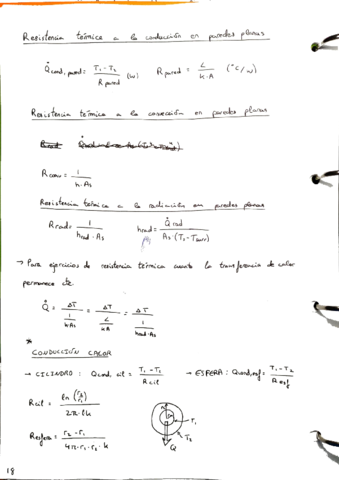 Resistencia térmica a la conducción en paredes planas
Q̇cond, pared = (T₁ - T₂) / R pared (W)    R pared = L / (k·A) (°C/W)
Resistencia térmica a la convección en paredes planas
R conv = 1 / (h·As)
Resistencia térmica a la radiación en paredes planas
R rad = 1 / (hrad · As)    hrad = Q̇rad / (As·(Ts - Tsurr))
→ Para ejercicios de resistencia térmica cuando la transferencia de calor
permanece cte.
Q̇ = ΔT / (1 / hAs) = ΔT / (L / kA) = ΔT / (1 / hrad·As)
*
CONDUCCIÓN CALOR
→ CILINDRO : Q cond. cil = (T₁ - T₂) / R cil    → ESFERA : Q cond, esf = (T₁ - T₂) / R esf
R cil = ln (r₂/r₁) / (2π·Lk)
R esfera = (r₂ - r₁) / (4π·r₁·r₂·k)
r₁
T₂
Q
18